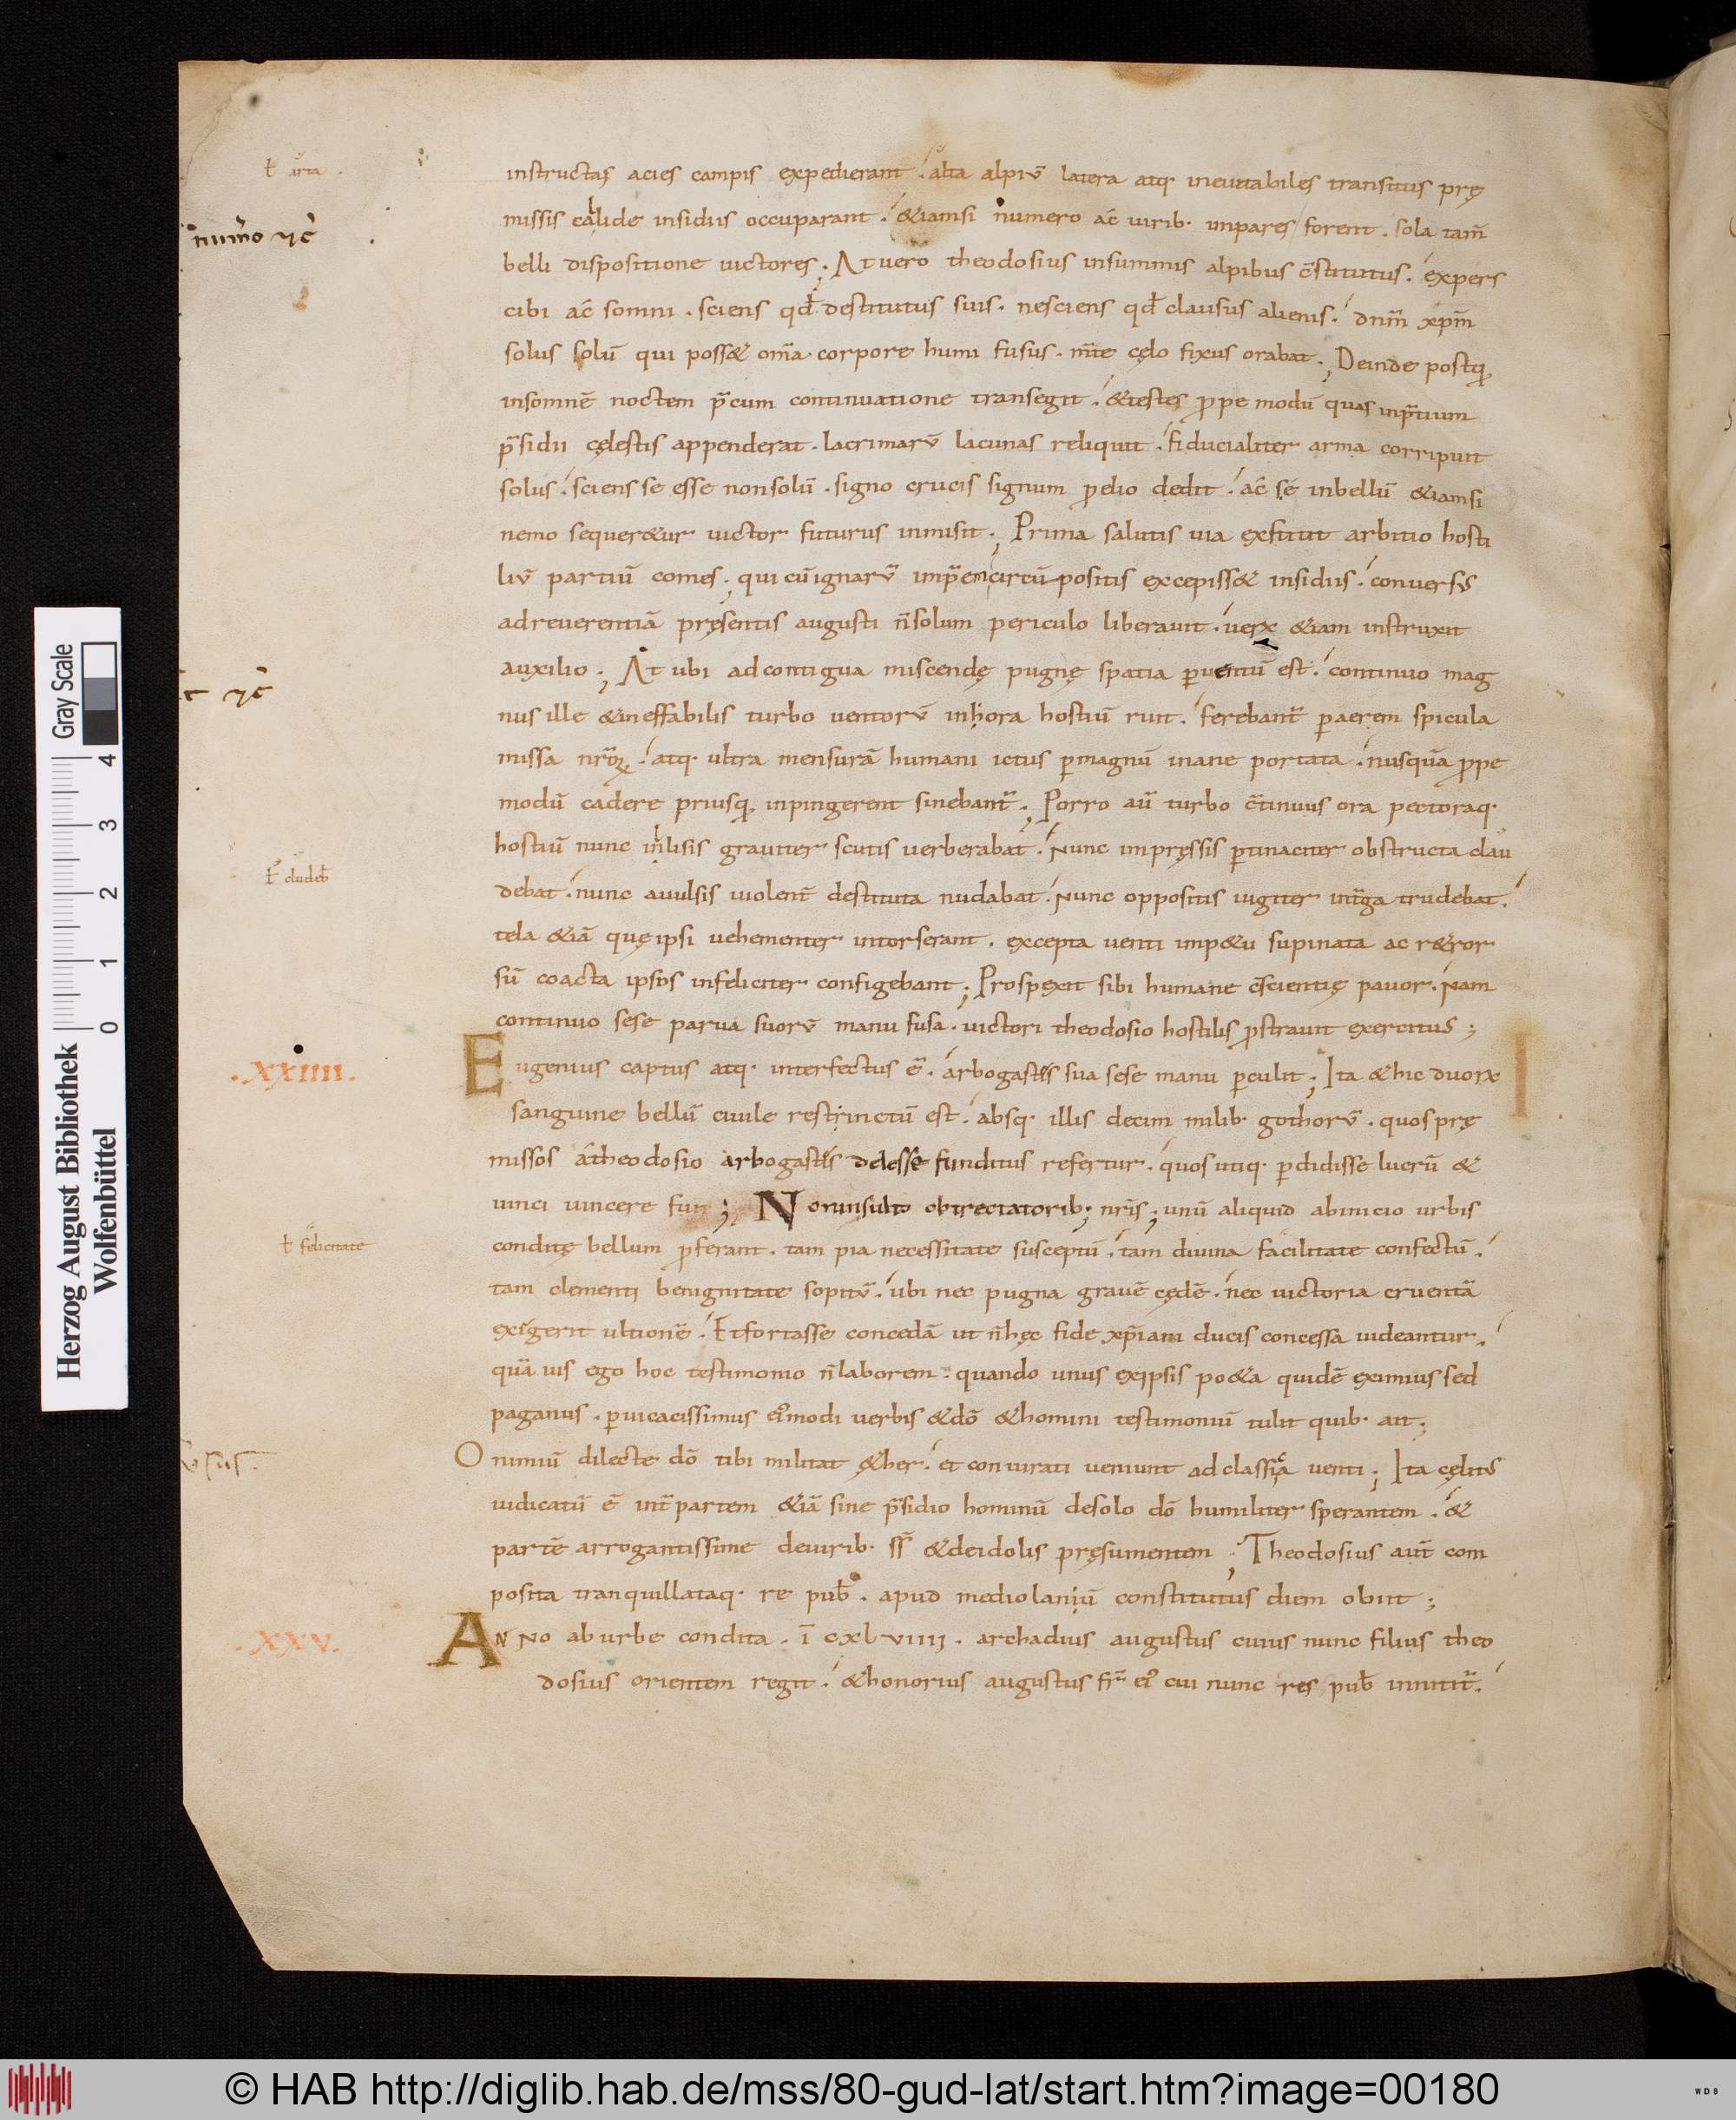 ł arta .
instructas acies campis expedierant . alta alpiũ latera atq· ineuitabiles transitus prę
missis callide insidiis occuparant . &iamsi numero ac̃ uirib· inpares forent . sola tam̃
num̃o ⁊c̃
belli dispositione uictores ; At uero theodosius insummis alpibus c̃stitutus . expers
cibi ac̃ somni . sciens qđ destitutus suis . nesciens qđ clausus alienis . dnm̃ xpm̃
solus solũ qui poss& om̃a corpore humi fusus . m̃te cęlo fixus orabat ; Deinde postq̃
insomnẽ noctem p̃cum continuatione transegit . &testes ꝓpe modũ quas inp̃tium
p̃sidii cęlestis appenderat . lacrimarũ lacunas reliquit . fiducialiter arma corripuit
solus . sciens se esse nonsolũ . signo crucis signum ꝓelio dedit . ac̃ se inbellũ &iamsi
nemo sequer&ur uictor futurus inmisit ; Prima salutis uia exstitit arbitio hosti
liũ partiũ comes . qui cũignarũ imp̃em circũpositis excepiss& insidiis . conuersꝰ
adreuerentiã pręsentis augusti ñsolum periculo liberauit . uerꝝ &iam instruxit
auxilio ; At ubi adcontigua miscendę pugnę spatia ꝑuentũ est . continuo mag
ꞇ ⁊c̃
nus ille &ineffabilis turbo uentorũ inhora hostiũ ruit . ferebant̃ ꝑaerem spicula
missa nr̃oꝝ . atq· ultra mensurã humani ictus ꝑmagnũ inane portata . nusquã ꝓpe
modũ cadere priusq̃ inpingerent sinebant̃ ; Porro aũ turbo c̃tinuus ora pectoraq·
hostiũ nunc inlisis grauiter scutis uerberabat . Nunc impressis ꝑtinaciter obstructa clau
ł cludeƀ
debat . nunc auulsis uiolent̃ destituta nudabat . Nunc oppositis iugiter int̃ga trudebat .
tela &iã quę ipsi uehementer intorserant . excepta uenti imp&u supinata ac r&ror
sũ coacta ipsos infeliciter configebant ; Prospexit sibi humane c̃scientię pauor . Nam
continuo sese parua suorũ manu fusa . uictori theodosio hostilis ꝓstrauit exercitus ;
. XXIIII .
Eugenius captus atq· interfectus ẽ . arbogastes sua sese manu ꝑculit ; Ita &hic duoꝝ
sanguine bellũ ciuile restrinctũ est . absq· illis decim milib· gothorũ . quospre
missos atheodosio arbogastes delesse funditus refertur . quos utiq· ꝑdidisse lucrũ &
uinci uincere fuit ; Noninsulto obtrectatorib; nr̃is ; unũ aliquid abinicio urbis
ł felicitate
conditę bellum ꝓferant . tam pia necessitate susceptũ . tam diuina facilitate confectũ .
tam clementi benignitate sopitũ . ubi nec pugna grauẽ cędẽ . nec uictoria cruentã
exigerit ultionẽ . Etfortasse concedã ut ñhęc fide xp̃iani ducis concessa uideantur .
quã uis ego hoc testimonio ñlaborem . quando unus exipsis po&a quidẽ eximius sed
paganus . ꝑuicacissimus eiꝰmodi uerbis &dõ &homini testimoniũ tulit quib· ait ;
O nimiũ dilecte dõ tibi militat &her . et coniurati ueniunt ad classica uenti ; Ita cęlitꝰ
iudicatũ ẽ int̃ partem &iã sine p̃sidio hominũ desolo dõ humiliter sperantem . &
partẽ arrogantissime deuirib· ss̃ &deidolis pręsumentem ; Theodosius aut̃ com
posita tranquillataq· re puƀ . apud mediolaniũ constitutus diem obiit ;
. XXV .
ANNO ab urbe condita . ĩ cxlviiii . archadius augustus cuius nunc filius theo
dosius orientem regit . &honorius augustus fr̃ eiꝰ cui nunc res puƀ innitit̃ .
Herzog August Bibliothek
Wolfenbüttel
0 1 2 3 4
Gray Scale
© HAB http://diglib.hab.de/mss/80-gud-lat/start.htm?image=00180
WDB